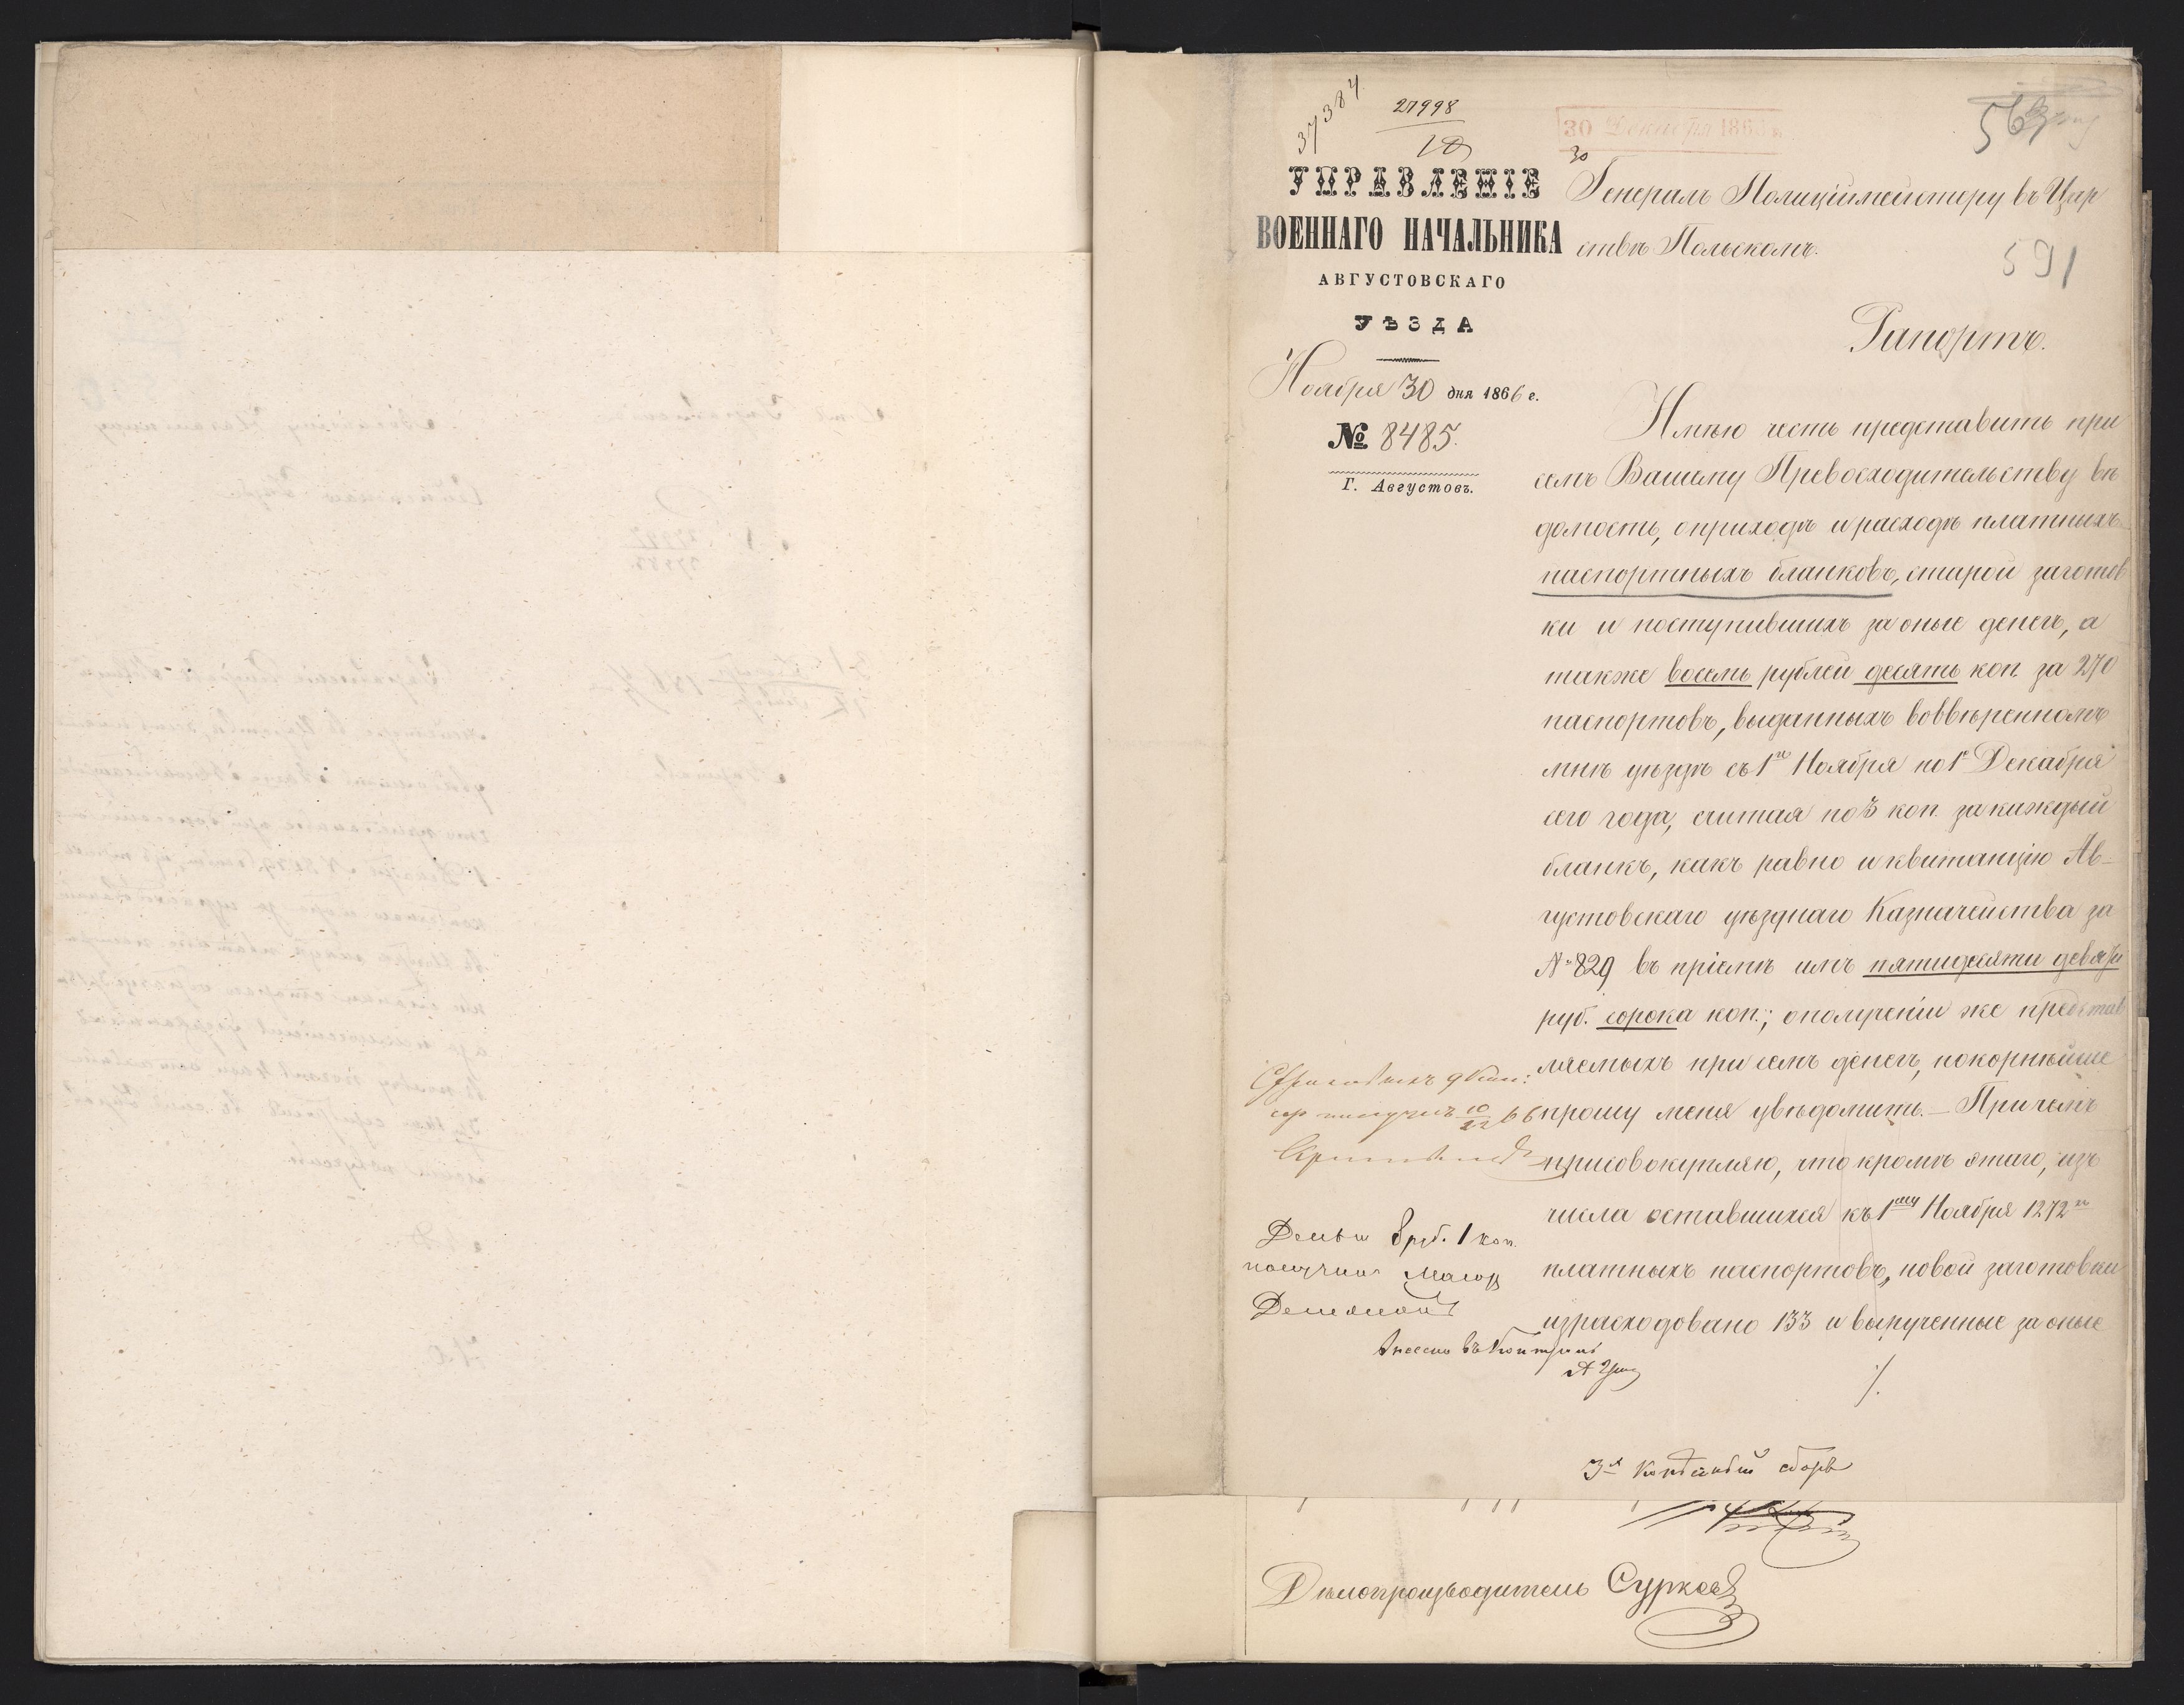 37384
27998
30 Декабря 186
УПРАВЛЕНІЕ
ВОЕННАГО НАЧАЛЬНИКА
АВГУСТОВСКАГО
УѢЗДА
Ноября 30 дня 1866 г.
№ 8485.
Г. Августовъ.
591
Генералъ Полиціймейстеру въ Цар
ствѣ Польскомъ.
Рапортъ.
Имѣю честь представить при
семъ Вашему Превосходительству вѣ
домость, о приходѣ и расходѣ платныхъ
паспортныхъ бланковъ, старой заготов
ки и поступившихъ за оные денегъ, а
также восемь рублей десять коп. за 270
паспортовъ, выданныхъ во ввѣренномъ
мнѣ уѣздѣ съ 1го Ноября по 1е Декабря
сего года, считая по 3 коп. за каждый
бланкъ, какъ равно и квитанцію Ав-
густовскаго уѣзднаго Казначейства за
№ 829 въ пріемѣ имъ пятидесяти девяти
руб. сорока коп.; о полученіи же представ
ляемыхъ при семъ денегъ, покорнѣйше
прошу меня увѣдомить. — При чемъ
присовокупляю, что кромѣ этаго, изъ
числа оставшихся къ 1му Ноября 1272х
платныхъ паспортовъ, новой заготовки
израсходовано 133 и вырученные за оные
./.
Деньги 8 руб. 1 коп.
получилъ Маіоръ
3х копѣечный сборъ
Дѣлопроизводитель Сурковъ